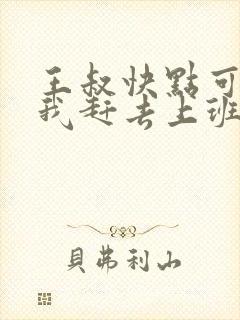 王叔快點可
我赶去上班
貝弗利山